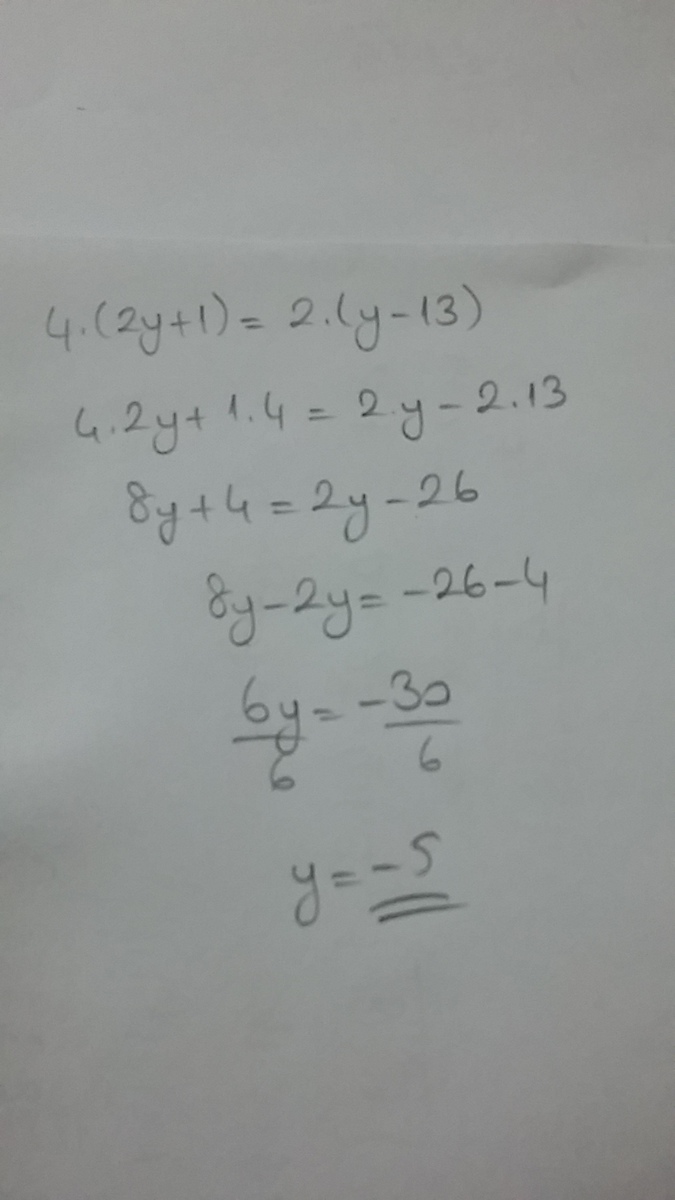 4.(2y+1)= 2.(y-13)
4.2y+ 1.4 = 2.y - 2.13
8y+4 = 2y - 26
8y-2y= -26-4
6y/6 = -30/6
y=-5